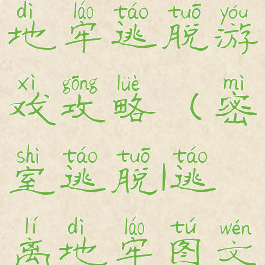 dì láo táo tuō yóu
地牢逃脱游
xì gōng lüè mì
戏攻略(密
shì táo tuō táo
室逃脱|逃
lí dì láo tú wén
离地牢图文